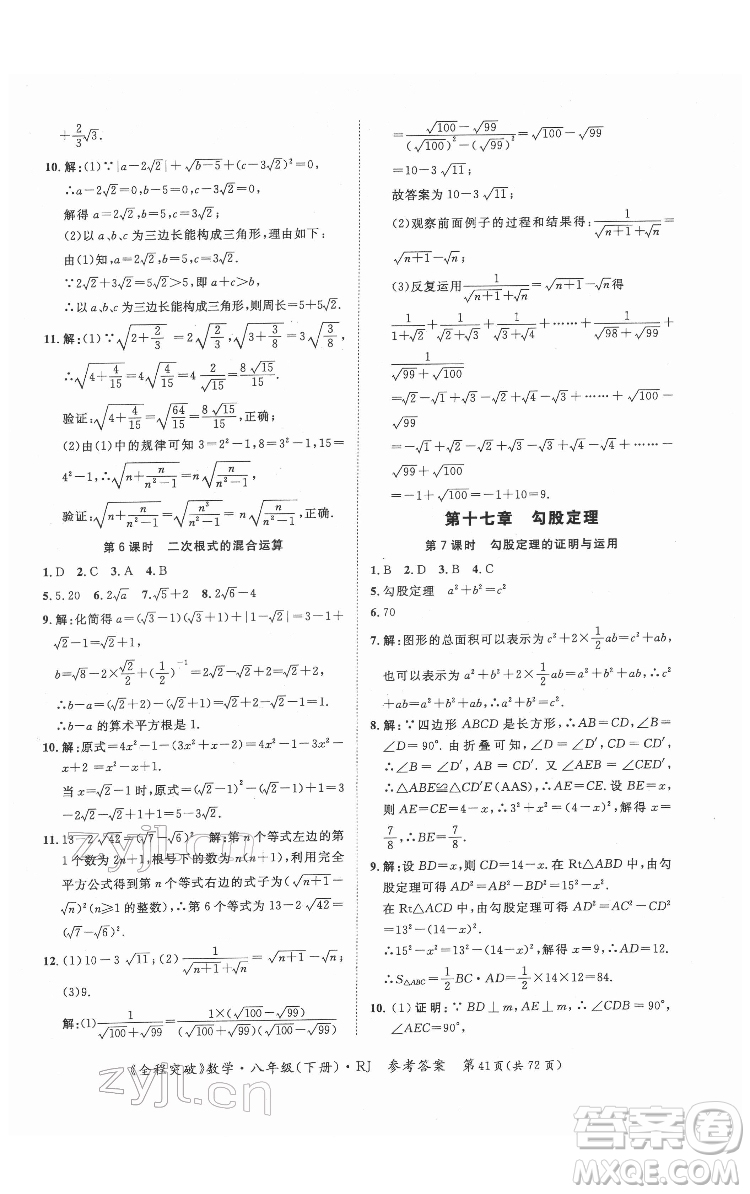 +2/3√3.
10. 解:(1)∵|a−2√2|+√(b−5)+(c−3√2)²=0,
∴a−2√2=0,b−5=0,c−3√2=0,
解得 a=2√2,b=5,c=3√2;
(2)以 a、b、c 为三边长能构成三角形,理由如下:
由(1)知 a=2√2,b=5,c=3√2,
∵2√2+3√2=5√2>5,
∴以 a、b、c 为三边长能构成三角形,则周长=5+5√2.
11. 解:(1)∵√(2+2/3)=2√(2/3),√(3+3/8)=3√(3/8),
∴√(4+4/15)=4√(4/15)=4×2/√15=8√15/15,
验证:√(4+4/15)=√(64/15)=8√15/15,正确;
(2)由(1)中的规律可知 3=2²−1,8=3²−1,15=
4²−1,∴√(n+n/(n²−1))=n√(n/(n²−1)),
验证:√(n+n/(n²−1))=√(n³/(n²−1))=n√(n/(n²−1));正确.
第 6 课时 二次根式的混合运算
1. D 2. C 3. A 4. B
5. 5.20 6. 2√a 7. √5+2 8. √2
9. 解:化简得 a=(√3−1)(√3+1)+√3(√3−1)+
√3−1=(√3−1)(√3+1+√3+1)=4,
b=√8−2×√2/2+(1/3)⁻¹=2√2−√2+3=√2+3,
∴b−a=√2−1,
∴b−a 的算术平方根是 1.
10. 解:原式=4x²−1−(3x²+3x−2x−2)=4x²−1−3x²−
x+2=x²−x+1.
当 x=√2−1 时,原式=(√2−1)²−(√2−1)+1=3
−2√2−√2+1+1=5−3√2.
11. 13−2√42=(√7−√6)² 解:第 n 个等式左边的第
1 个数为 2n+1,根号下的数为 n(n+1),利用完全
平方公式得到第 n 个等式右边的式子为(√(n+1)−
√n)²(n≥1 的整数),∴第 6 个等式为 13−2√42=(√7
−√6)².
12. (1)10−3√11;(2)1/(√(n+1)+√n)=√(n+1)−√n;
(3)9.
解:(1)1/(√100+√99)=1×(√100−√99)/((√100+√99)(√100−√99))
=(√100−√99)/((√100)²−(√99)²)=√100−√99
=10−3√11;
故答案为 10−3√11;
(2)观察前面例子的过程和结果得:1/(√(n+1)+√n)=
√(n+1)−√n;
(3)反复运用1/(√(n+1)+√n)=√(n+1)−√n得
1/(1+√2)+1/(√2+√3)+1/(√3+√4)+……+1/(√98+√99)+
1/(√99+√100)
=−√1+√2−√2+√3−√3+√4−……+√99−
√99+√100
=−√1+√2−√2+√3−√3+√4−……+√99−
√99+√100
=−1+√100=−1+10=9.
第十七章 勾股定理
第 7 课时 勾股定理的证明与运用
1. B 2. D 3. B 4. C
5. 勾股定理 a²+b²=c²
6. 70
7. 解:图形的总面积可以表示为 c²+2×1/2ab=c²+ab,
也可以表示为 a²+b²+2×1/2ab=a²+b²+ab,∴c²
+ab=a²+b²+ab,∴a²+b²=c².
8. 解:∵四边形 ABCD 是长方形,∴AB=CD,∠B=
∠D=90°. 由折叠可知,∠D=∠D′,CD=CD′,
∴∠B=∠D′,AB=CD′. 又∵∠AEB=∠CED′,
∴△ABE≌△CD′E(AAS),∴AE=CE.
则 AE=CE=4−x,由勾股定理可得 BE=
7/8,∴BE=7/8.
9. 解:设 BD=x,则 CD=14−x. 在 Rt△ABD 中,由勾
股定理可得 AD²=AB²−BD²=15²−x²,
在 Rt△ACD 中,由勾股定理可得 AD²=AC²−CD²
=13²−(14−x)²,
∴15²−x²=13²−(14−x)²,解得 x=9,∴AD=12.
∴S△ABC=1/2BC·AD=1/2×14×12=84.
10. (1)证明:∵BD⊥m,AE⊥m,∴∠CDB=90°,
∠AEC=90°,
《全程突破》数学·八年级(下册)·RJ 参考答案 第41页(共72页)
zyjl.cn
zyjl.cn
答案圈
MXQE.COM